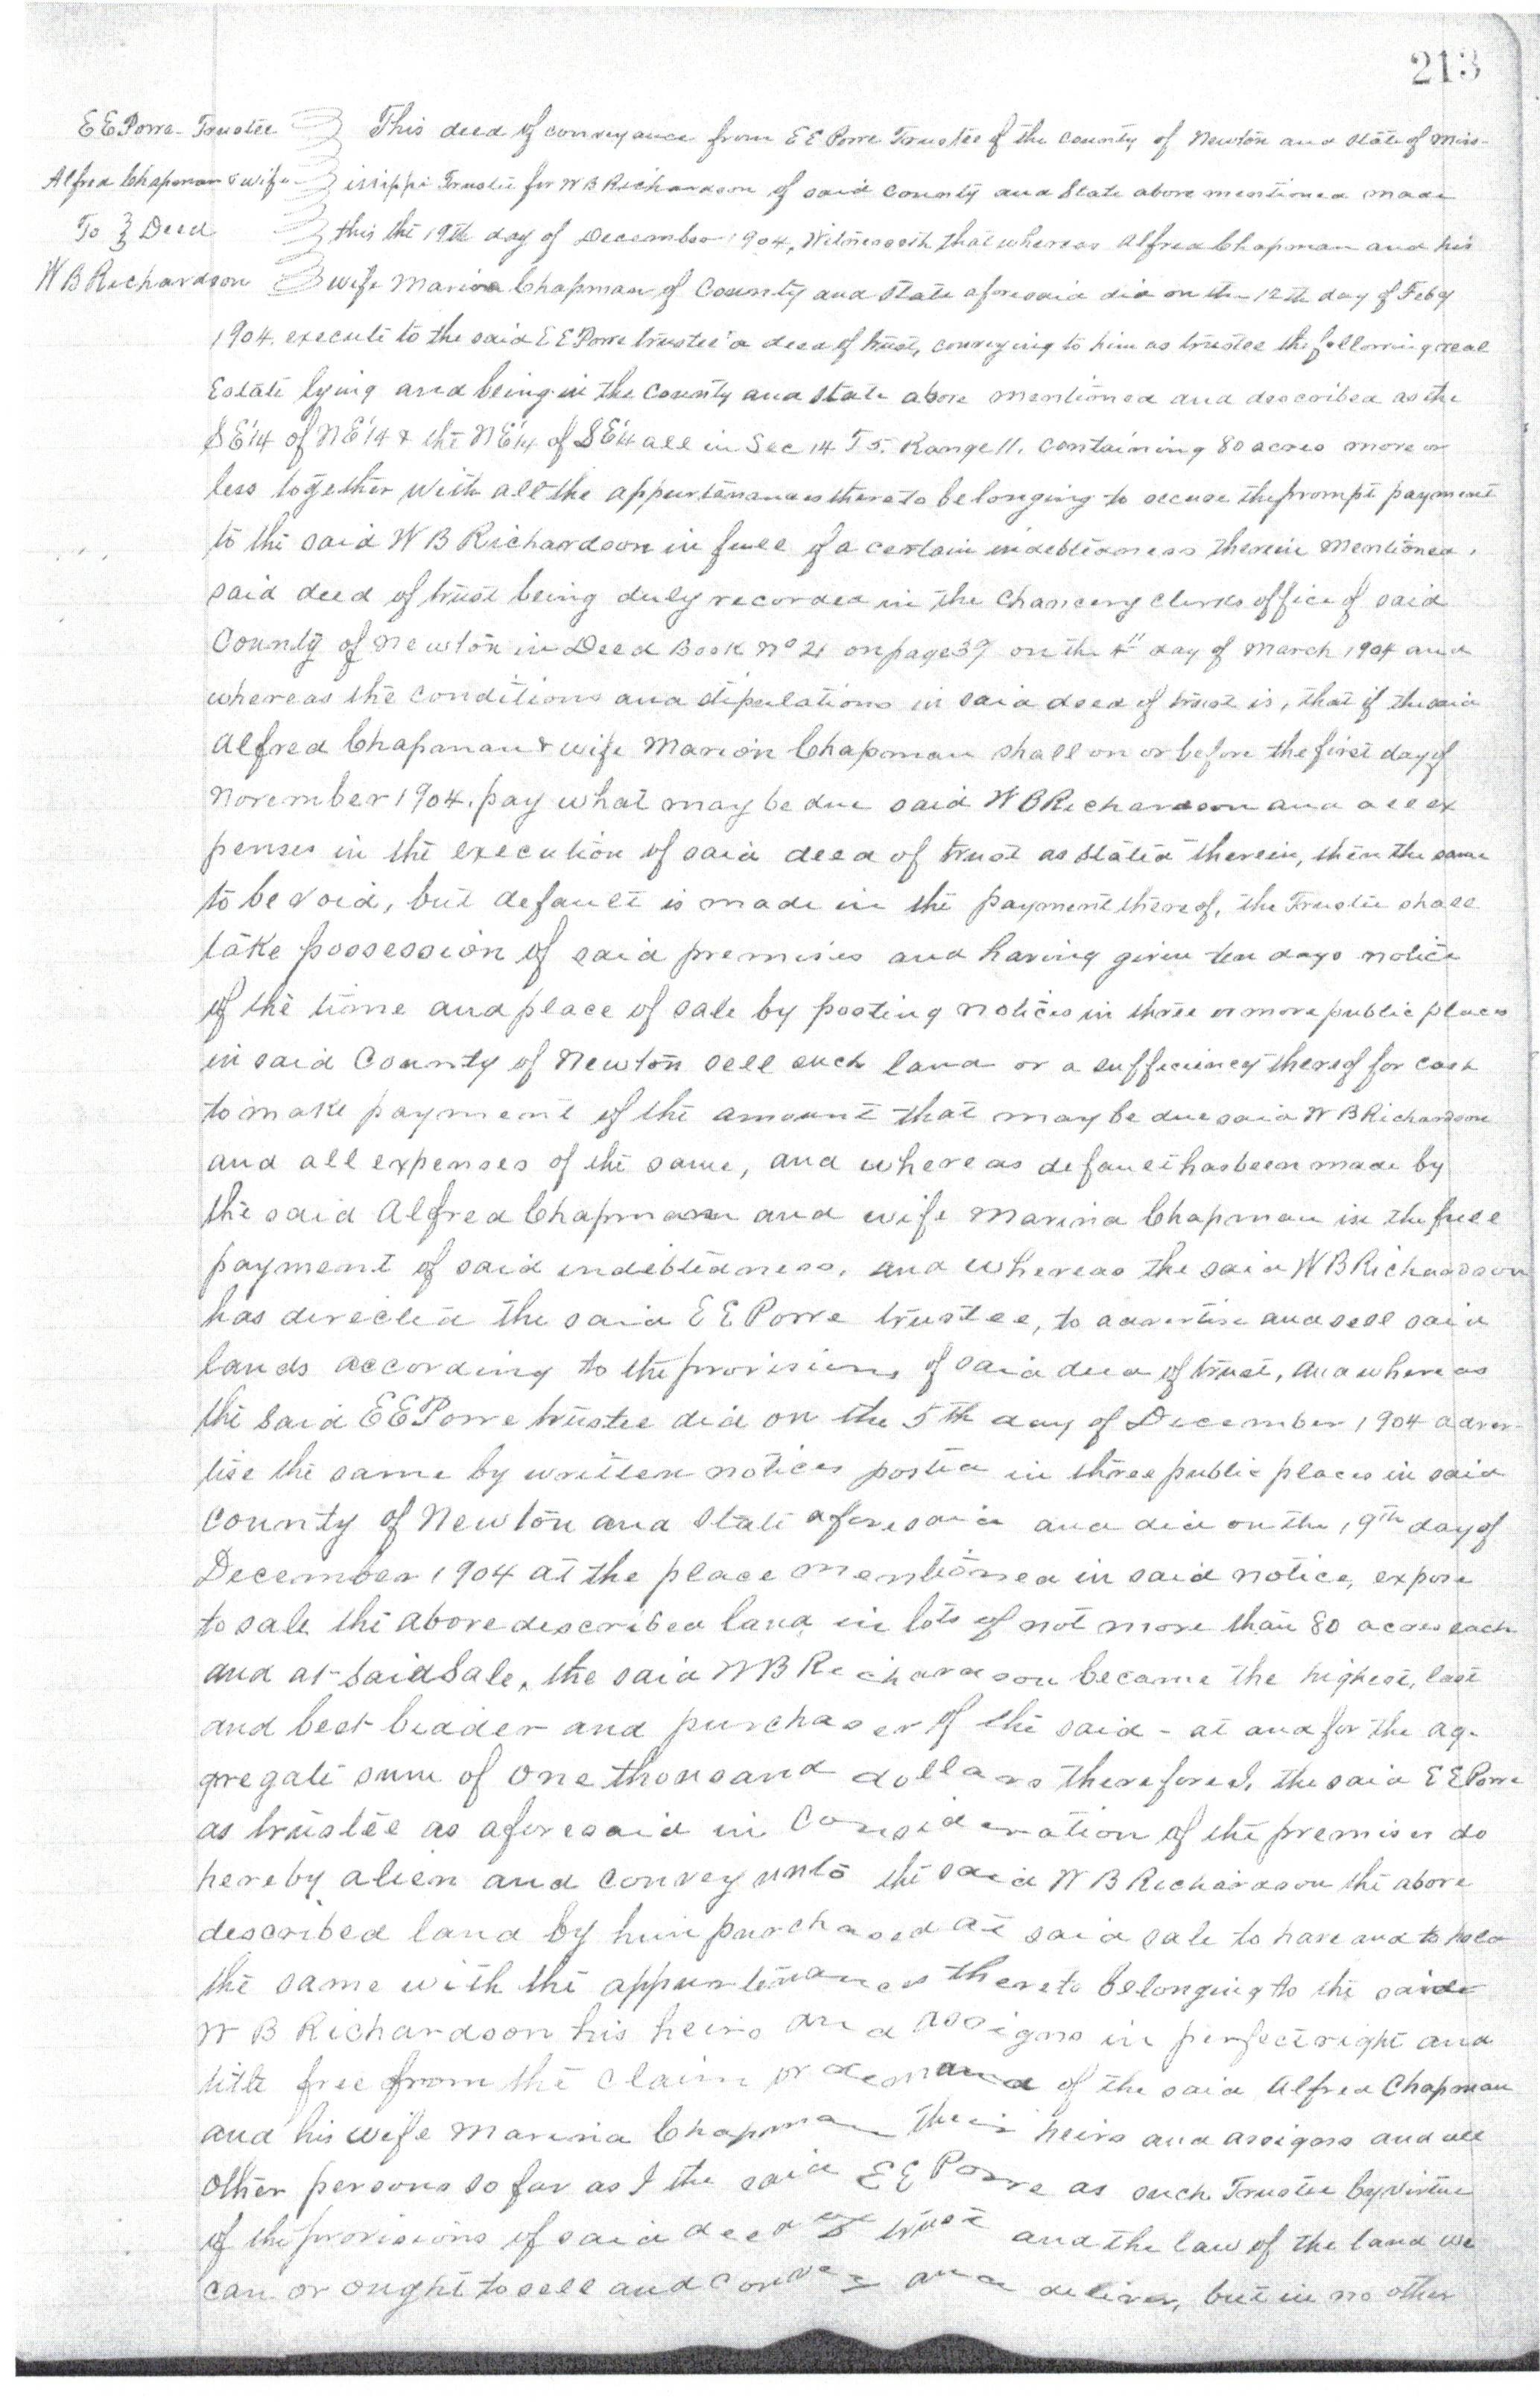 213
E E Porre Trustee
Alfred Chapman & wife
To } Deed
W B Richardson
This deed of conveyance from E E Porre Trustee of the County of Newton and State of Miss-
issippi Trustee for W B Richardson of said County and State above mentioned made
this the 19th day of December 1904, Witnesseth that whereas Alfred Chapman and his
wife Marina Chapman of County and State aforesaid did on the 12th day of Feby
1904. execute to the said E E Porre trustee a deed of trust, conveying to him as trustee the following real
Estate lying and being in the County and State above mentioned and described as the
SE1/4 of NE1/4 & the NE1/4 of SE1/4 all in Sec 14 T 5. Range 11. containing 80 acres more or
less together with all the appurtenances thereto belonging to secure the prompt payment
to the said W B Richardson in full of a certain indebtedness therein mentioned.
said deed of trust being duly recorded in the Chancery clerks office of said
County of Newton in Deed Book No 21 on page 39 on the 4" day of March 1904 and
whereas the conditions and stipulations in said deed of trust is, that if the said
Alfred Chapman & wife Marion Chapman shall on or before the first day of
November 1904. pay what may be due said W B Richardson and all ex
penses in the execution of said deed of trust as stated therein, then the same
to be void, but default is made in the payment thereof, the Trustee shall
take possession of said premises and having given ten days notice
of the time and place of sale by posting notices in three or more public places
in said County of Newton sell such land or a sufficiency thereof for cash
to make payment of the amount that may be due said W B Richardson
and all expenses of the same, and whereas default has been made by
the said Alfred Chapman and wife Marina Chapman in the full
payment of said indebtedness, and whereas the said W B Richardson
has directed the said E E Porre trustee, to advertise and sell said
lands according to the provisions of said deed of trust, and whereas
the said E E Porre trustee did on the 5th day of December 1904 adver-
tise the same by written notices posted in three public places in said
county of Newton and State aforesaid and did on the 19th day of
December 1904 at the place mentioned in said notice, expose
to sale the above described land in lots of not more than 80 acres each
and at said Sale, the said W B Richardson became the highest, last
and best bidder and purchaser of the said - at and for the ag-
gregate sum of one thousand dollars therefore I, the said E E Porre
as trustee as aforesaid in consideration of the premises do
hereby alien and convey unto the said W B Richardson the above
described land by him purchased at said sale to have and to hold
the same with the appurtenances thereto belonging to the said
W B Richardson his heirs and assigns in perfect right and
title free from the claim or demand of the said Alfred Chapman
and his wife Marina Chapman their heirs and assigns and all
other persons so far as I the said E E Porre as such Trustee by virtue
of the provisions of said deed of trust and the law of the land we
can or ought to sell and convey and deliver, but in no other